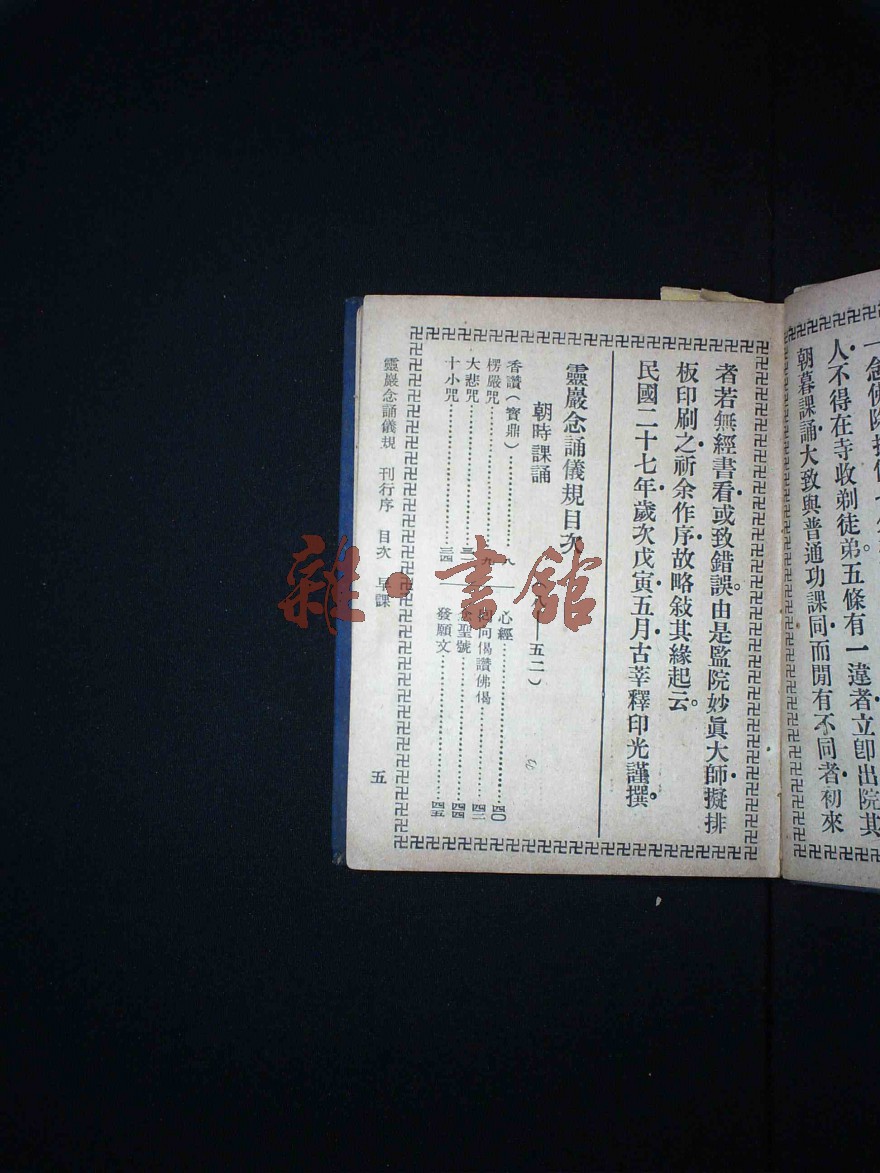 人不得在寺收剃徒弟。五條有一違者立卽出院其
朝暮課誦大致與普通功課同而閒有不同者初來
者若無經書看或致錯誤。由是監院妙眞大師擬排
板印刷之祈余作序故略敍其緣起云。
民國二十七年歲次戊寅五月古莘釋印光謹撰。
靈巖念誦儀規目次
朝時課誦
五二)
香讚(寶鼎)
九
楞嚴咒
大悲咒
十小咒
三四
心經
四〇
向偈讚佛偈
四三
聖號
四四
發願文
四五
靈巖念誦儀規 刊行序 目次 早課
五
雜·書館